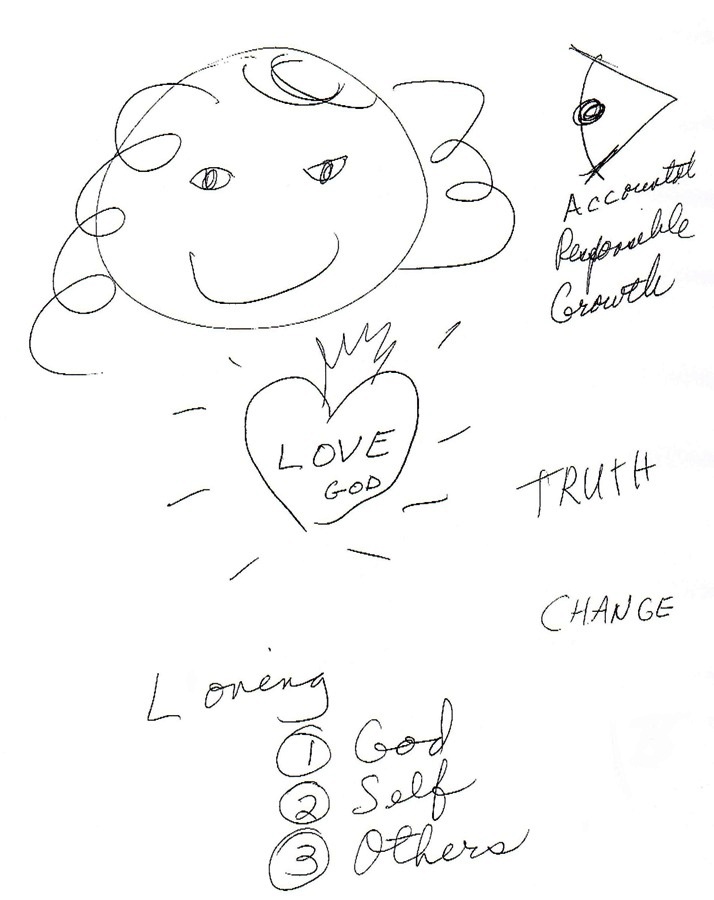 Responsible
Growth
LOVE
GOD
TRUTH
CHANGE
Loving
1 God
2 Self
3 Others